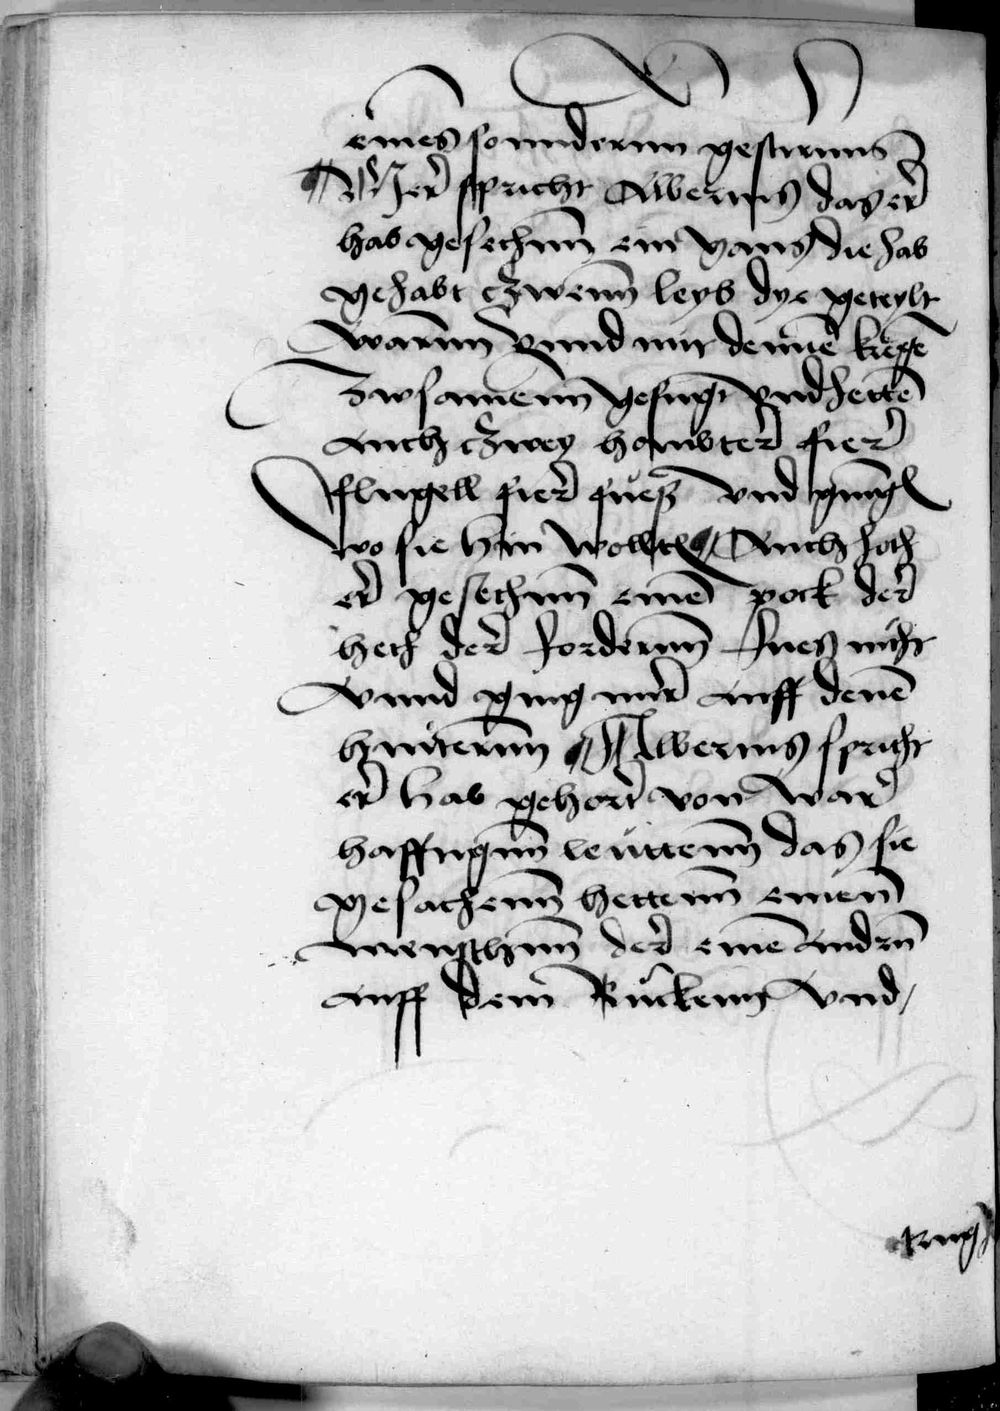 eines sonndernn gestirnns
¶ Mer spricht Albertus das er
hab gesechnn ein gans die hab
gehabt czwenn leyb dye geteylt
warnn vnnd mit dem̄e
zwsamenn gefugt vnd hette
auch czwey hawbter fier
flugell fier fuess vnd ging
wo sie hin wollt ¶ Auch hoth
er gesechnn eine pock der
heth der fordernn fues nicht
vnnd ging nur auff dene
hinternn ¶ Albertus spricht
er hab gehort von war
hafftignn leuttenn das sie
gesachenn hettenn einen
menschnn der eine andrn
auff dem Ruckenn vnd
trug